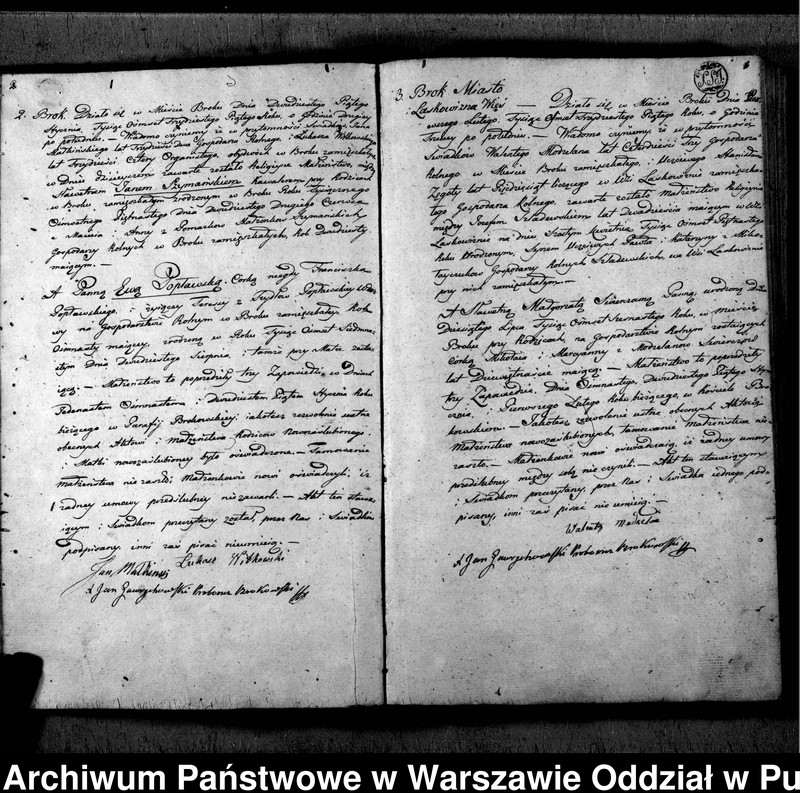 2. Brok. Działo się w Mieście Broku Dnia Dwudziestego Piątego
Stycznia, Tysiąc Ośmset Trzydziestego Piątego Roku, o Godzinie drugiey
po południu. Wiadomo czyniemy, że w przytomności Świadków Jana
lat Trzydzieści Gospodarza Rolnego i Łukasza Witkowskiego
lat Trzydzieści Cztery Organisty, obydwóch w Broku zamieszkałych
w dniu dzisieyszym zawarte zostało Religiyne Małżeństwo, między
Sławetnym Janem Szymańskim Kawalerem przy Rodzicach
w Broku zamieszkałym zrodzonym w Broku Roku Tysiącznego
Ośmsetnego Piętnastego Dnia dwudziestego Drugiego Czerwca
z Macieia i Anny z Małżonków Szymańskich
Gospodarzy Rolnych w Broku zamieszkałych, Rok Dwudziesty
maiącym. —
A Panną Ewą Popławską, Córką niegdy Franciszka
Popławskiego, i żyiącey Teressy z Popławskiey Wdo-
wy na Gospodarstwie Rolnym w Broku zamieszkałey Rok
Ośmnasty maiącey, zrodzoną w Roku Tysiąc Ośmset Siedmna-
stym Dnia dwudziestego Sierpnia, tamże przy Matce zosta-
iącą. — Małżeństwo to poprzedziły trzy Zapowiedzi, w Dniach
Jedenastem Ośmnastem i Dwudziestem Piątem Stycznia Roku
bieżącego w Parafii Brokowskiey iakoteż zezwolenie ustne
obecnych Aktowi Małżeństwa Rodziców Nowozaślubionego,
i Matki nowozaślubioney było oświadczone. — Tamowanie
małżeństwa nie zaszło, Małżonkowie nowi oświadczyli, iż
żadney umowy przedślubney nie zawarli. — Akt ten stawa-
iącym i Świadkom przeczytany został, przez Nas i Świadków
podpisany, inni zaś pisać nieumieią. —
Jan Łukasz Witkowski
X Jan Zawrzykowski Proboszcz Brokowski
3. Brok Miasto
i Laskowizna Wieś — Działo się w Mieście Broku Dnia Pier-
wszego Lutego, Tysiąc Ośmset Trzydziestego Piątego Roku, o Godzinie
po południu. — Wiadomo czyniemy, że w przytomności
Świadków Walentego Modzelana lat Czterdzieści trzy Gospodarza
Rolnego w Mieście Broku zamieszkałego, i Uczciwego Stanisława
Zgoty lat Pięćdziesiąt liczącego w Wsi Laskowiźnie zamieszka-
łego Gospodarza Rolnego, zawarte zostało małżeństwo Religiyne
między Józefem lat Dwadzieścia maiącym w Wsi
Laskowiźnie na dniu Szóstym Kwietnia Tysiąc Ośmset Piętnastego
Roku Urodzonym, Synem Uczciwych Pawła i Katarzyny z Miko-
łayczuków Gospodarzy Rolnych we Wsi Laskowiźnie
przy nich zamieszkałym. —
A Sławetną Małgorzatą Panną, urodzoną Dnia
Dziesiątego Lipca Tysiąc Ośmset Szesnastego Roku, w Mieście
Broku przy Rodzicach, na Gospodarstwie Rolnym zostaiących
Córką Mikołaia i Maryanny z Modzelanów
lat Dziewiętnaście maiącą. — Małżeństwo to poprzedziły
trzy Zapowiedzie, Dnia Ośmnastego, Dwudziestego Piątego Sty-
cznia, i Pierwszego Lutego Roku bieżącego, w Kościele Bro-
kowskim. — Jakoteż zezwolenie ustne obecnych Aktowi
Małżeństwa nowozaślubionych, tamowanie Małżeństwa nie
zaszło. — Małżonkowie nowi oświadczaią, iż żadney umowy
przedślubney między sobą nie czynili. — Akt ten stawaiącym
i Świadkom przeczytany, przez Nas i Świadka iednego pod-
pisany, inni zaś pisać nie umieią. —
Walenty Modzelan
X Jan Zawrzykowski Proboszcz Brokowski
Archiwum Państwowe w Warszawie Oddział w Pu